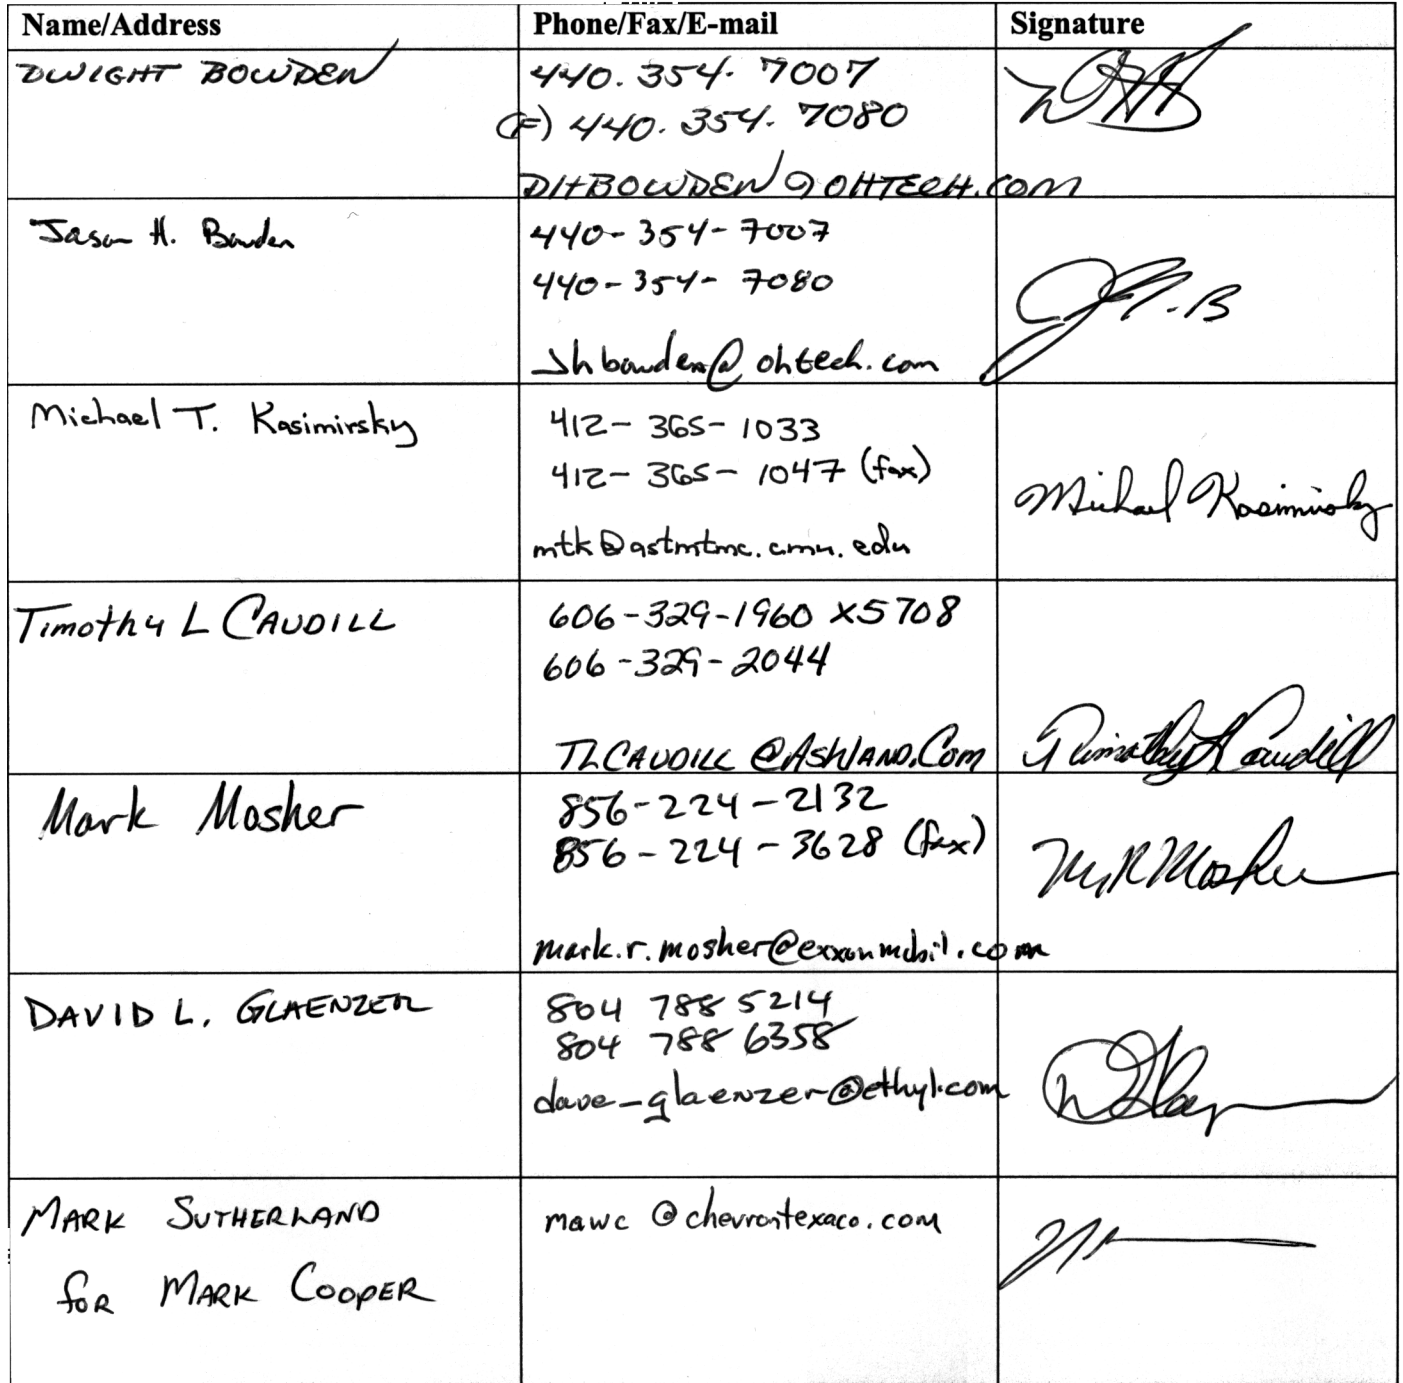 Name/Address Phone/Fax/E-mail Signature
DWIGHT BOWDEN
440.354.7007
(F) 440.354.7080
DHBOWDEN@OHTECH.COM
Jason H. Bowden
440-354-7007
440-354-7080
jhbowden@ohtech.com
J H. B
Michael T. Kasimirsky
412-365-1033
412-365-1047 (fax)
mtk@astmtmc.cmu.edu
Michael Kasimirsky
Timothy L CAUDILL
606-329-1960 X5708
606-329-2044
TLCAUDILL @Ashland.Com
Timothy L Caudill
Mark Mosher
856-224-2132
856-224-3628 (fax)
mark.r.mosher@exxonmobil.com
M R Mosher
DAVID L. GLAENZER
804 788 5214
804 788 6358
dave_glaenzer@ethyl.com
MARK SUTHERLAND
for MARK COOPER
mawc @chevrontexaco.com